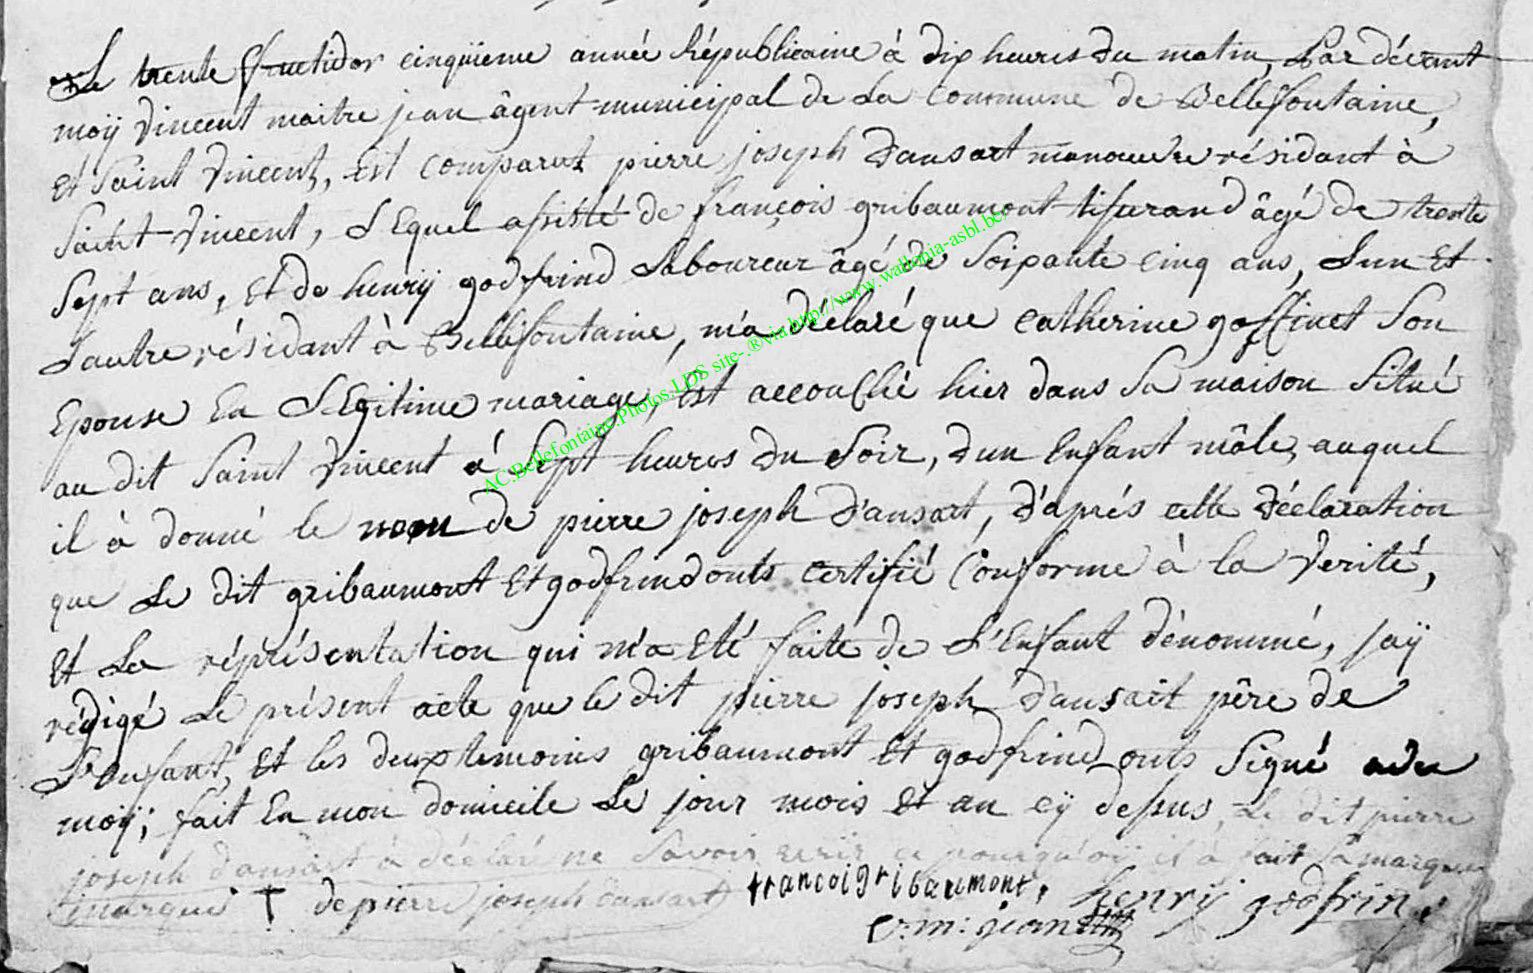 Le trente fructidor cinquïeme année Républicaine à dix heures du matin, Par dévant
moÿ Vincent maitre jean âgent municipal de La Commune de Bellefontaine,
Et Saint Vincent, Est comparut pierre joseph Dansart manoeuvre résidant à
Saint Vincent, LEquel assisté de françois gribaumont tisurand âgé de trente
Sept ans, Et de henrÿ godfrind Laboureur âgé de Soixante cinq ans, Lun Et
Lautre résidant à Bellefontaine, m'a déclaré que Catherine goffinet Son
Epouse En LEgitime mariage, Est accouché hier dans Sa maison Situé
au dit Saint Vincent à Sept heures du Soir, dun Enfant mâle, auquel
il à donné le nom de pierre joseph D'ansart, D'aprés cette Déclaration
que Le dit gribaumont Et godfrind onts Certifié Conforme à la Verité,
Et La réprésentation qui m'a Eté faite de L'Enfant dénommé, jaÿ
rédigé Le présent acte que le dit pierre joseph D'ansart pêre de
L'enfant, Et les deux temoins gribaumont Et godfrind onts Signé
moÿ; fait En mon domicile Le jour mois Et an cÿ desus, Le dit pierre
joseph dansart à déclaré ne Savoir ecrir ce pourquoÿ il à fait Sa marque
marque † de pierre joseph dansart francoi gribaumont, henrÿ godfrin
v: m: jean
AC.Bellefontaine.Photos.LDS site-.®via.http://www.wallonia-asbl.be